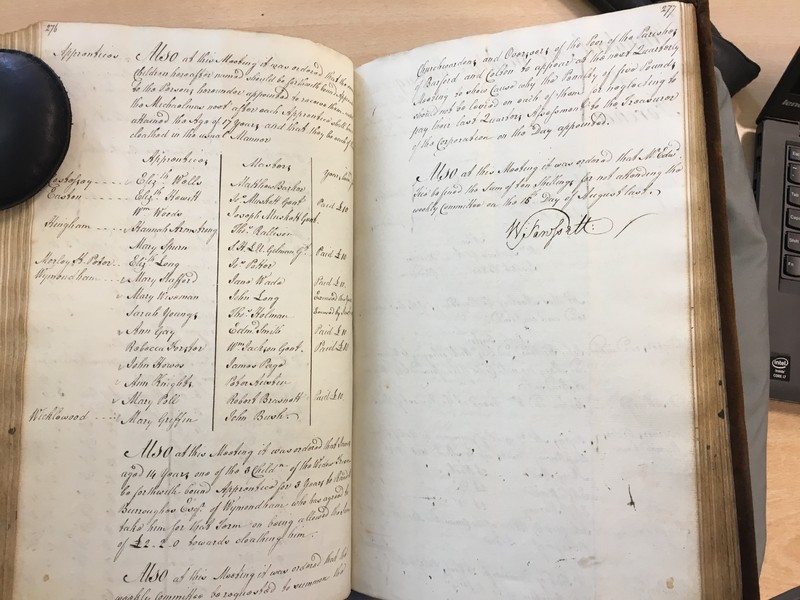 276
Apprentices
Also at this Meeting it was ordered that the
Children hereafter named should be forthwith bound
to the Persons hereunder appointed to receive them
the Michaelmas next after each Apprentice shall have
attained the Age of 17 Years and that they
cloathed in the usual Manner
Apprentices Masters
Costessey Eliz.th Walls Mathew Barker
Easton Eliz.th Howitt Js. Muskett Gent Paid £10
Wm Woods Joseph Muskett Gent.
Hingham Hannah Armstrong Thos.
Mary Spurn Gilman Paid £10
Morley St. Peter Eliz.th Long Js. Potter
Wymondham Mary Stafford Jane Wade Paid £10
Mary Wiseman John Long
Sarah Young Thos. Holman
Ann Gay Edmd. Smith Paid £10
Rebecca Forster Wm Jackson Gent. Paid £10
John Howes James Page
Ann Knights Peter
Mary Poll Robert Brasnett Paid £10
Wicklewood Mary Griffin John Bush
Also at this Meeting it was ordered that
aged 14 Years one of the 3 Childn. of the Widow
be forthwith bound Apprentice for 3 Years to
Burroughes Esqr. of Wymondham who has agreed to
take him for that Term on being allowed the Sum
of £2..2..0 towards cloathing him
Also at this Meeting it was ordered that the
weekly Committee be requested to summon the
277
Churchwardens and Overseers of the Poor of the Parishes
of Barford and Colton to appear at the next Quarterly
Meeting to shew Cause why the Penalty of five Pounds
should not be levied on each of them for neglecting to
pay their last Quarters Assessment to the Treasurer
of the Corporation on the Day appointed.
Also at this Meeting it was ordered that Mr. Edmd.
be fined the Sum of Ten Shillings for not attending the
weekly Committee on the 15th Day of August last.
W. Fawssett
intel
CORE i7